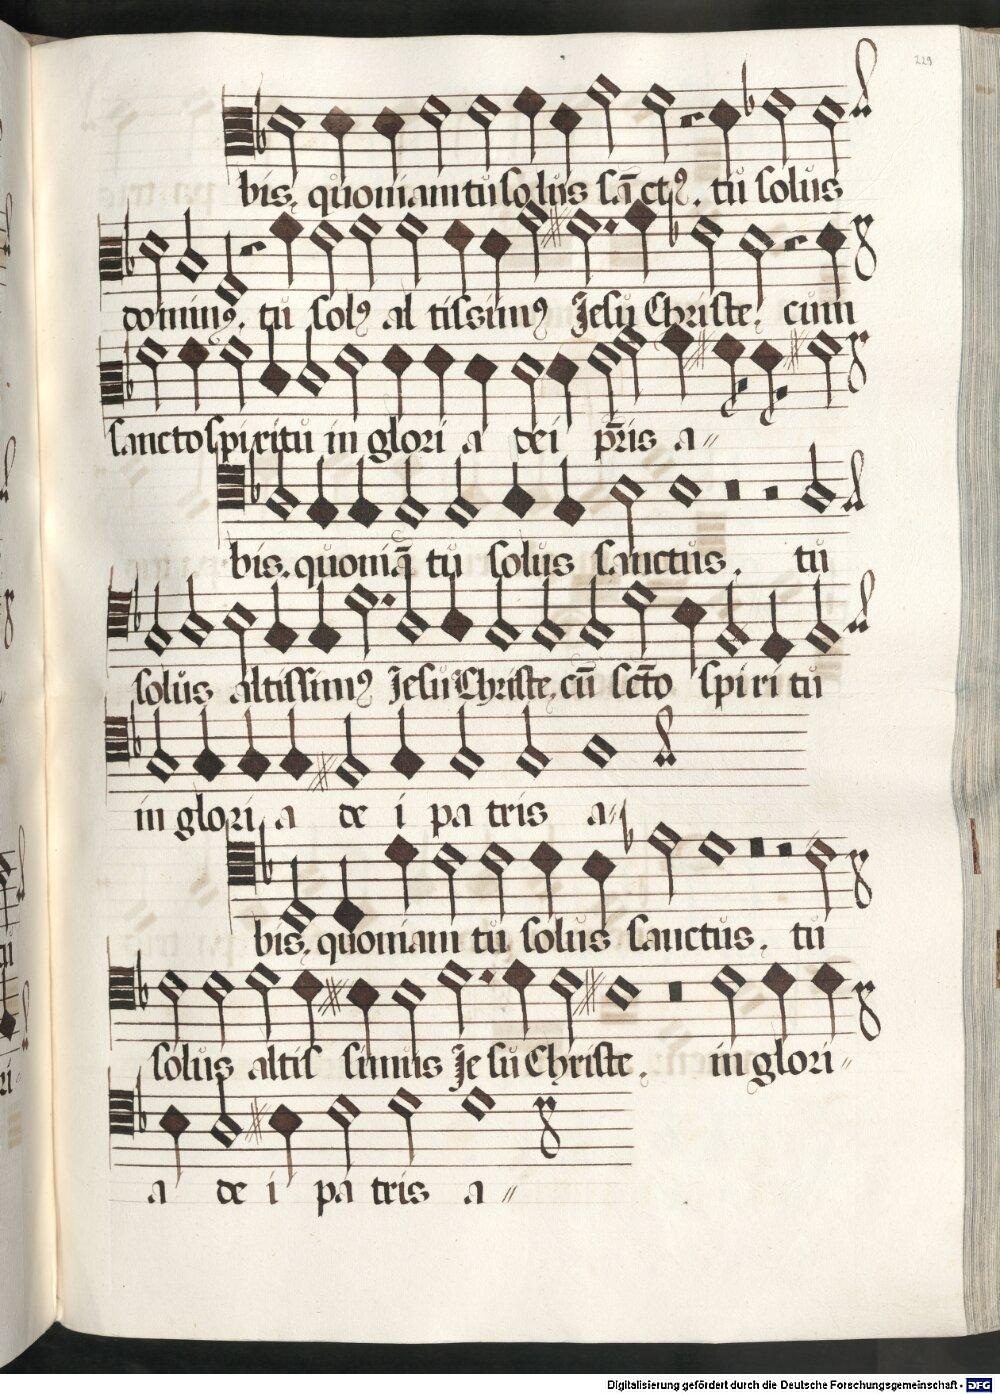 229
bis. quoniam tu solus sāctꝰ. tu solus
dominꝰ. tu solꝰ al tissimꝰ Jesu Christe. cum
sancto spiritu in glori a dei pr̄is a
bis. quoniā tu solus sanctus. tu
solus altissimꝰ Jesu Christe. cū scto spi ri tu
in glori a de i pa tris a
bis. quoniam tu solus sanctus. tu
solus altis simus Je su Christe. in glori
a de i pa tris a
Digitalisierung gefördert durch die Deutsche Forschungsgemeinschaft - DFG